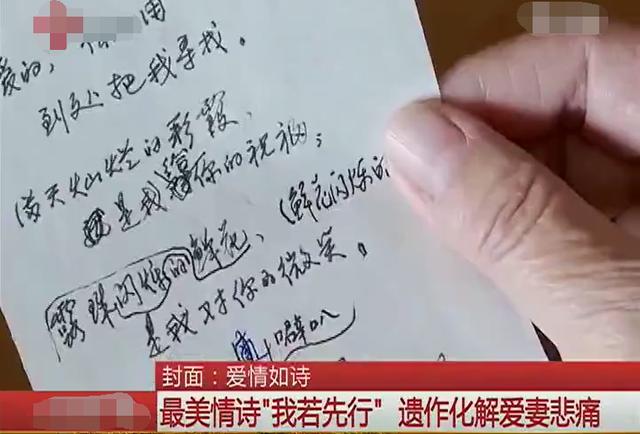 爱的,
到处把我寻找。
满天灿烂的彩霞、
是我你的祝福;
露珠闪烁的鲜花、(鲜花闪烁的
是我对你的微笑。
噼叭
封面：爱情如诗
最美情诗"我若先行" 遗作化解爱妻悲痛